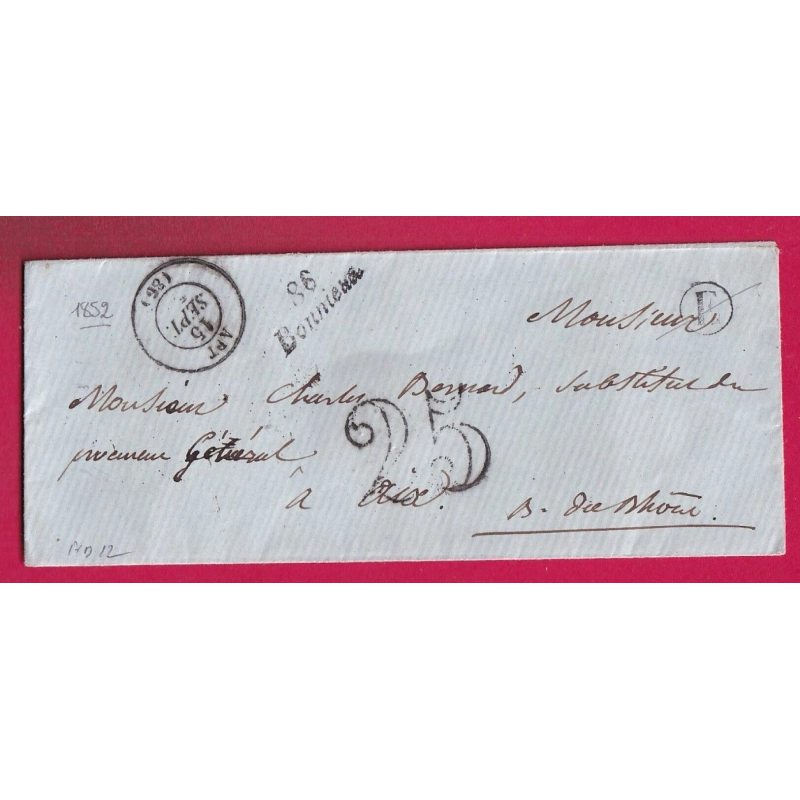 1852
APT
15
SEPT.
(86)
86
Bonnieux
E
Monsieur
Monsieur Charles Bernard, Substitut du
procureur Général
25
à Aix.
B. du Rhône.